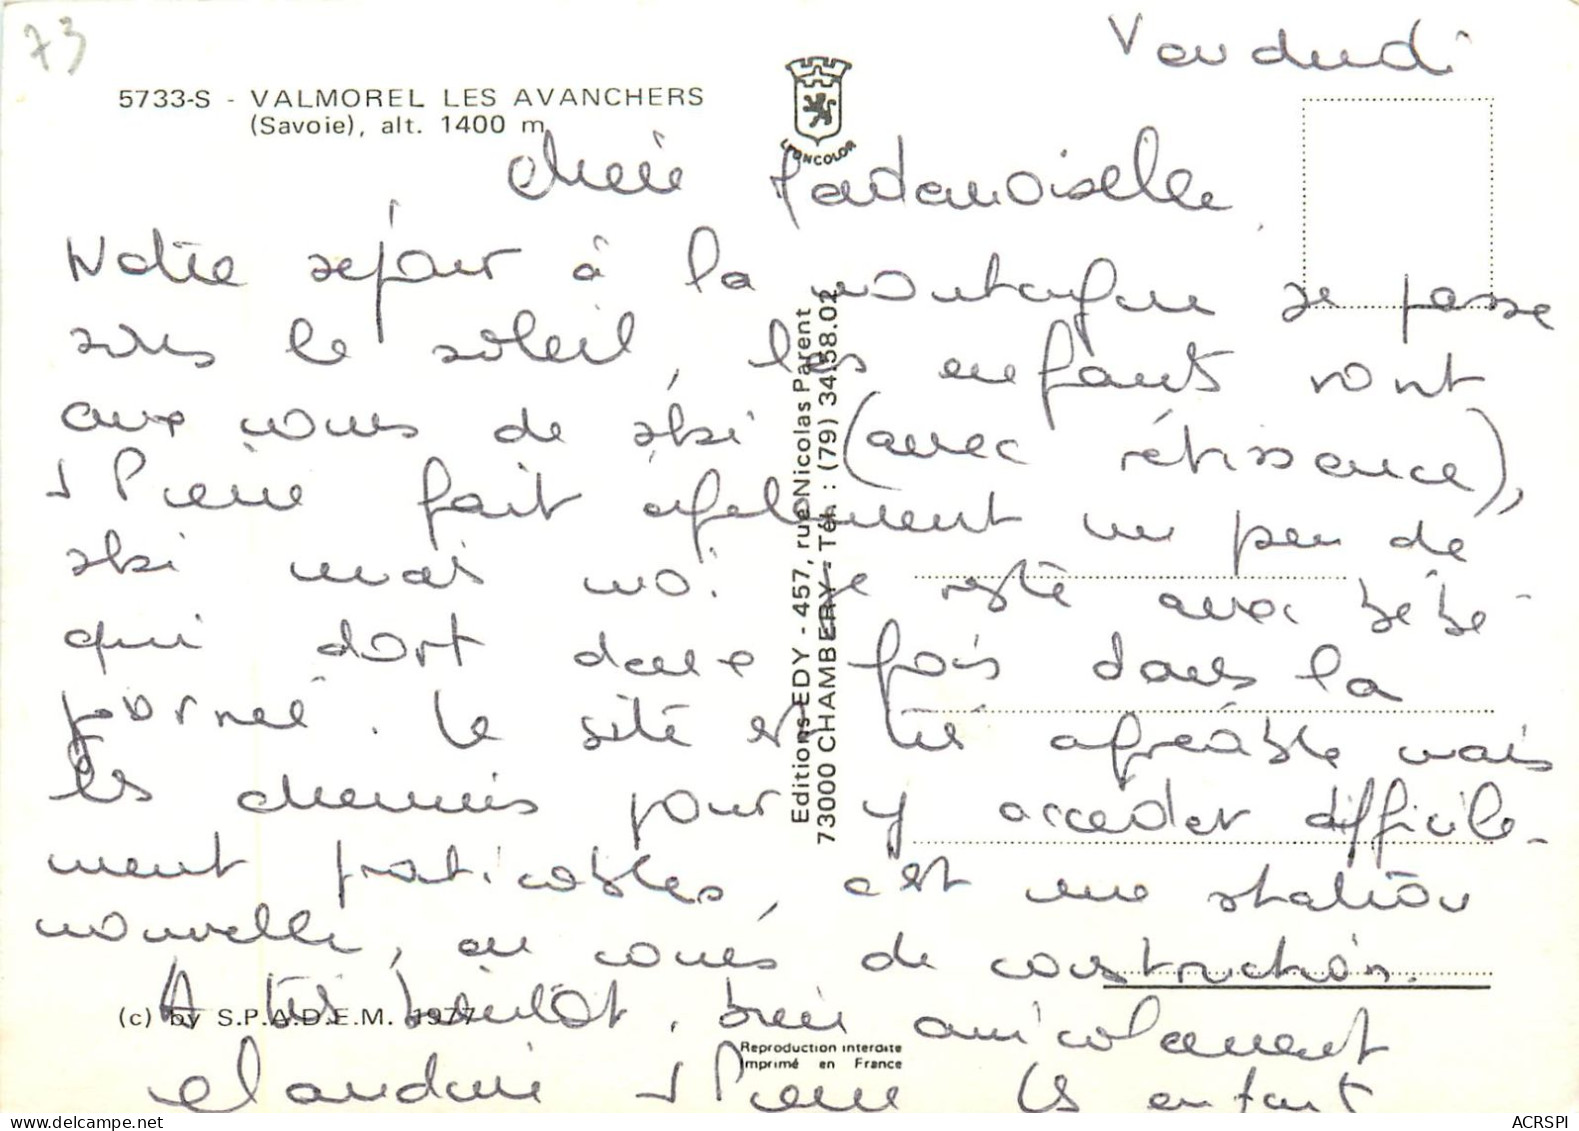 73
Vendredi
5733-S - VALMOREL LES AVANCHERS
(Savoie), alt. 1400 m
LYONCOLOR
Chère Mademoiselle,
Notre séjour à la montagne se passe
sous le soleil, les enfants vont
aux cours de ski (avec rétissence),
Pierre fait également un peu de
ski mais moi je reste avec bébé
qui dort deux fois dans la
journée. Le site est très agréable mais
les chemins pour y accéder difficile-
ment praticables, c'est une station
nouvelle, en cours de construction.
A très bientôt, bien amicalement
Claudine Pierre les enfants
Editions EDY - 457, rue Nicolas Parent
73000 CHAMBERY - Tél. : (79) 34.58.02
(c) by S.P.A.D.E.M. 1977
Reproduction interdite
Imprimé en France
ACRSPI